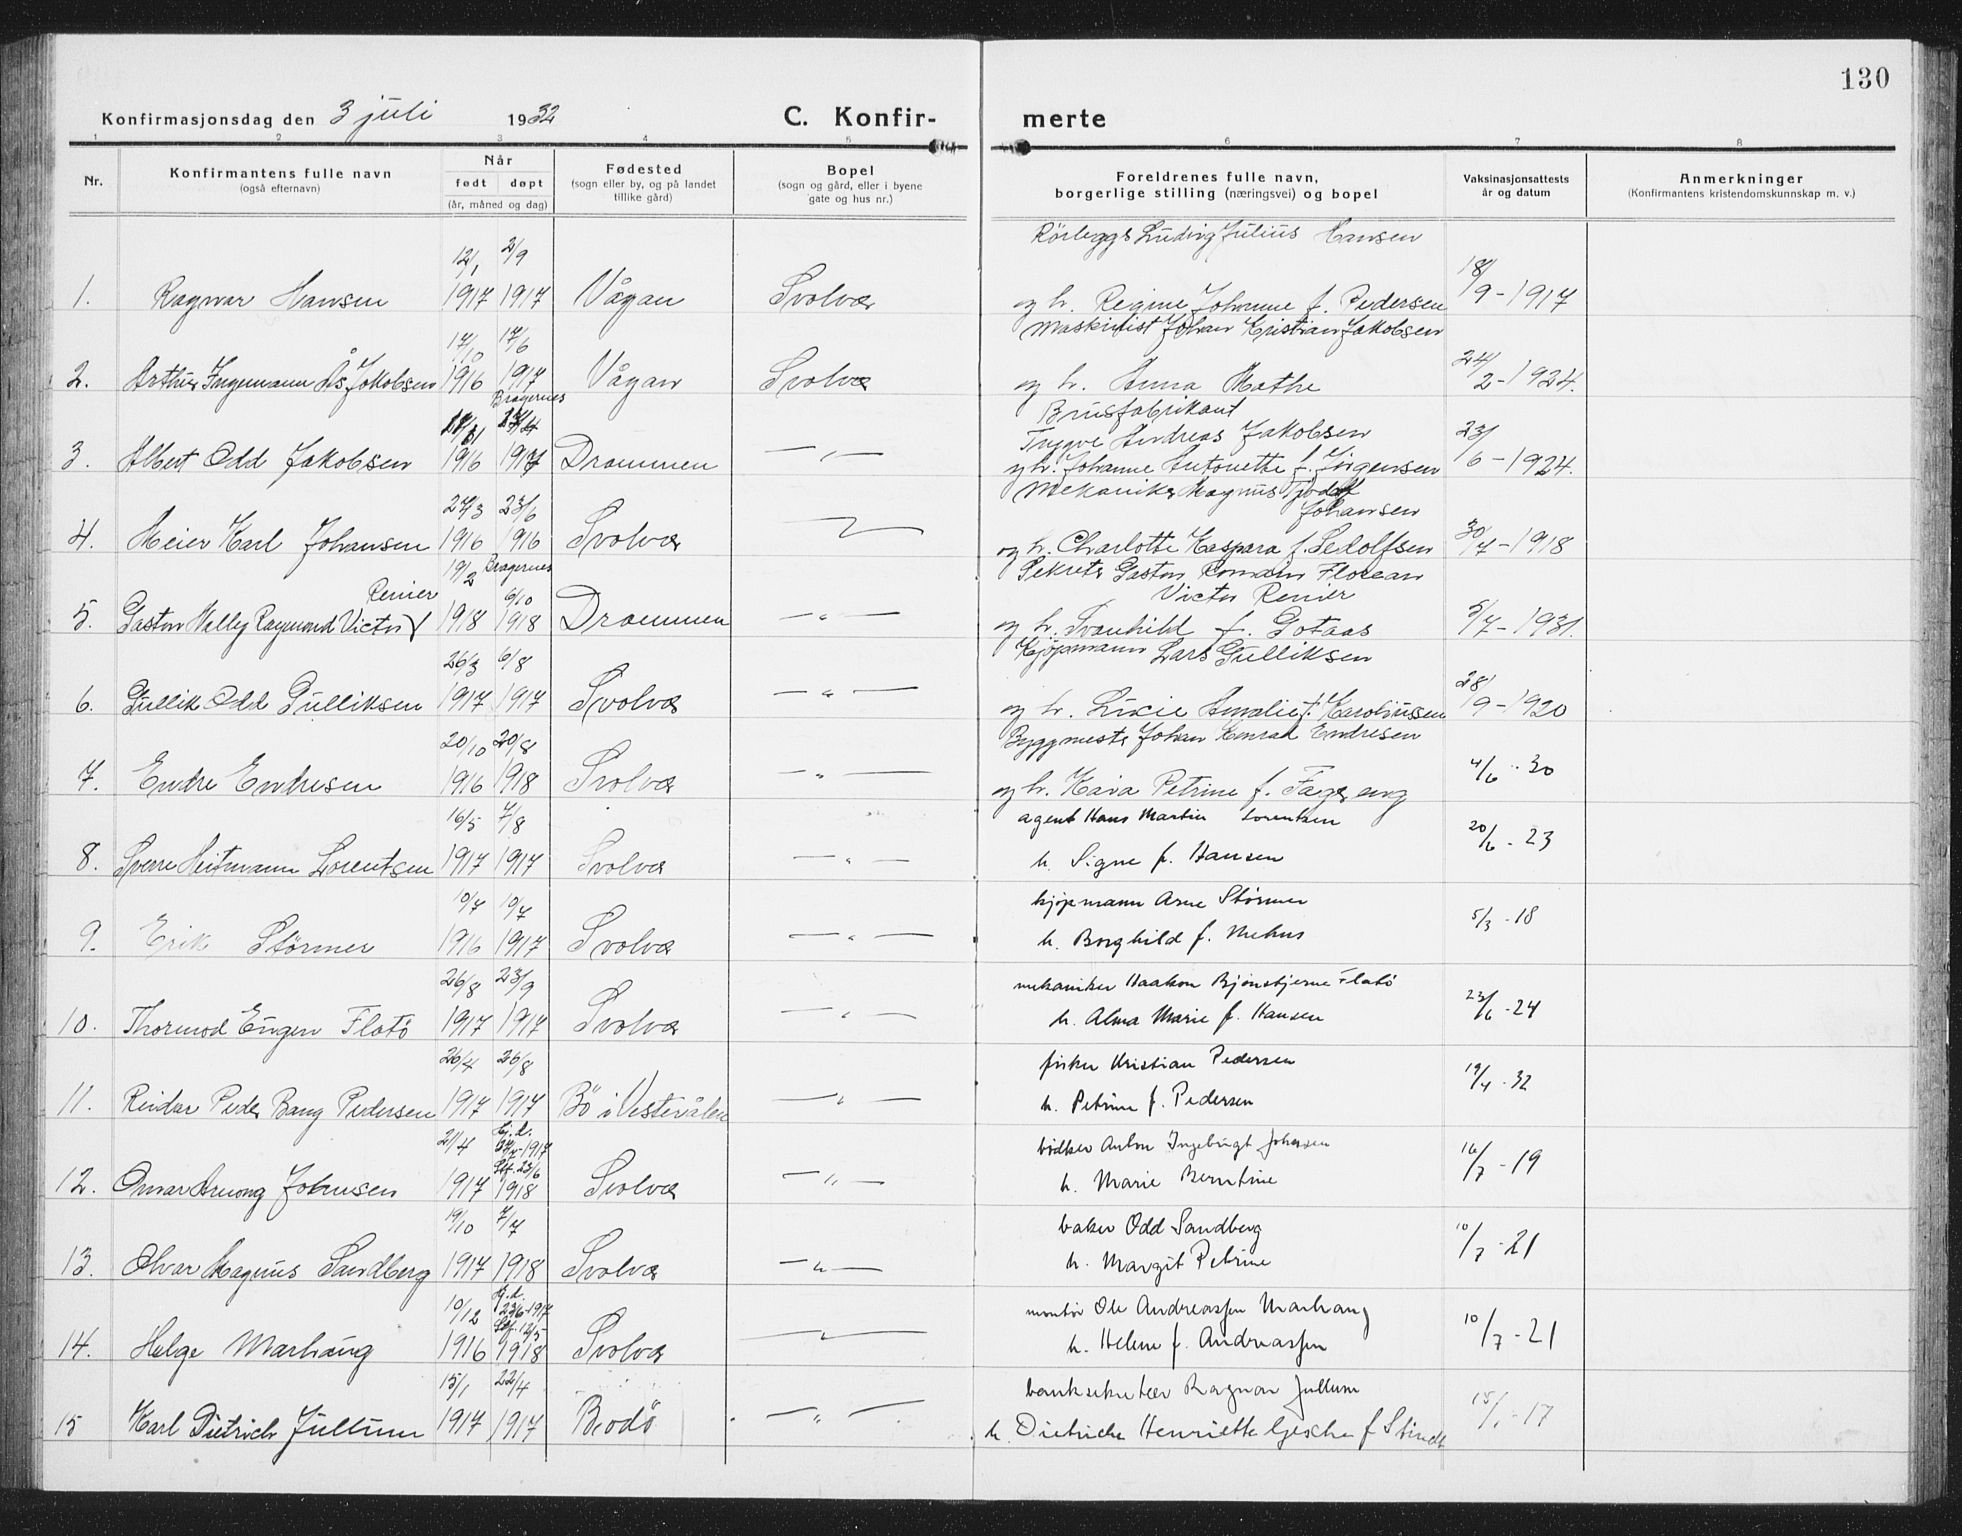 130
Konfirmasjonsdag den 3 juli 1932
C. Konfir- merte
1 2 3 4 5 6 7 8
Nr.
Konfirmantens fulle navn
(også efternavn)
Når
født døpt
(år, måned og dag)
Fødested
(sogn eller by, og på landet
tillike gård)
Bopel
(sogn og gård, eller i byene
gate og hus nr.)
Foreldrenes fulle navn,
borgerlige stilling (næringsvei) og bopel
Vaksinasjonsattests
år og datum
Anmerkninger
(Konfirmantens kristendomskunnskap m. v.)
12/1 2/9 Rörleggs Ludvig Julius Hansen
1. Ragnar Hansen 1917 1917 Vågan Svolvær og h. Regine Johanne f. Pedersen 18/9-1917
17/10 17/6 Maskinist Johan Kristian Jakobsen
2. Arthur Ingemann Ås. Jakobsen 1916 1917 Vågan Svolvær og h. Anna Mathe 24/2-1924.
Bragernes Brusfabrikant
Trygve Andreas Jakobsen
3. Albert Odd Jakobsen 1916 1917 Drammen — " — og h. Johanne Antonette f. Jörgensen 23/6-1924.
27/3 23/6 Mekaniker Magnus Tjodolf
Johansen
4. Meier Karl Johansen 1916 1916 Svolvær og h. Charlotte Kaspara f. Sedolfsen 30/7-1918
19/2 Bragernes Sekretær Gaston Romain Florean
Renier 6/10 Victor Renier
5. Gaston Willy Raymond Victor 1918 1918 Drammen — " — og h. Svanhild f. Gotaas 5/7-1931.
26/3 6/8 Kjøpmann Lars Gulliksen
6. Gullik Odd Gulliksen 1917 1917 Svolvær — " — og h. Lucie Amalie f. Karoliussen 28/9-1920
20/10 20/8 Byggmester Johan Konrad Endresen
7. Endre Endresen 1916 1918 Svolvær — " — og h. Kaia Petrine f. Fagereng 4/6-30
16/5 7/8 agent Hans Martin Lorentsen
8. Sverre Heitmann Lorentsen 1917 1917 Svolvær — " — h. Signe f. Hansen 20/6-23
10/7 10/7 kjøpmann Arne Størmer
9. Erik Störmer 1916 1917 Svolvær — " — h. Borghild f. Mehus 5/3-18
26/8 23/9 mekaniker Haakon Bjönstjerne Flatö
10. Thormod Eugen Flatö 1917 1917 Svolvær — " — h. Alma Marie f. Hansen 23/6-24
26/4 26/8 fisker Kristian Pedersen
11. Reidar Peder Bang Pedersen 1917 1917 Bö i Vesterålen — " — h. Petrine f. Pedersen 19/4-32
21/4 Hj.d. 1917 bødker Anton Ingebrigt Johnsen
Stf. 23/6
12. Omar Arnong Johnsen 1917 1918 Svolvær — " — h. Marie Berntine 16/7-19
19/10 7/7 baker Odd Sandberg
13. Olvar Magnus Sandberg 1917 1918 Svolvær — " — h. Margit Petrine 10/7-21
10/12 Hj.d. 23/6-1917 montør Ole Andreassen Marhaug
Stf. 12/5
14. Helge Marhaug 1916 1918 Svolvær — " — h. Helene f. Andreassen 10/7-21
15/1 22/4 banksekretær Ragnar Jullum
15 Karl Dietrich Jullum 1917 1917 Bodö — " — h. Dietriche Henriette Gesche f Stindt 15/1-17